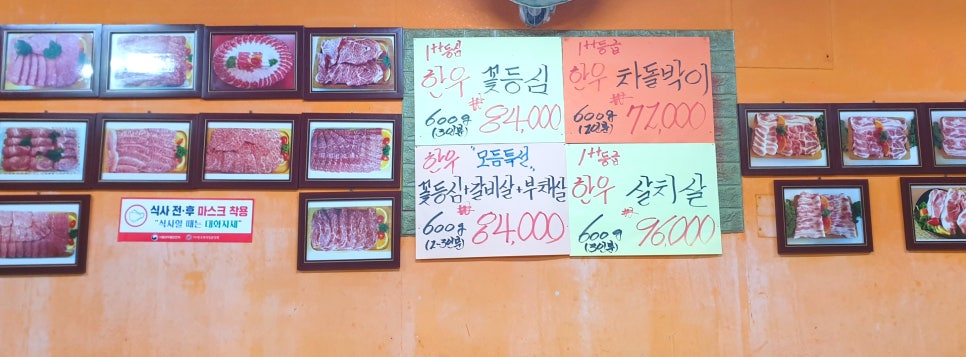 1++등심
한우 꽃등심
600g
(3인분)
84,000
1++등급
한우 차돌박이
600g
72,000
한우 "모듬특선"
꽃등심+갈비살+부채살
600g
(2-3인분)
84,000
1++등급
한우 살치살
600g
(3인분)
96,000
식사 전·후 마스크 착용
"식사할 때는 대화자제"